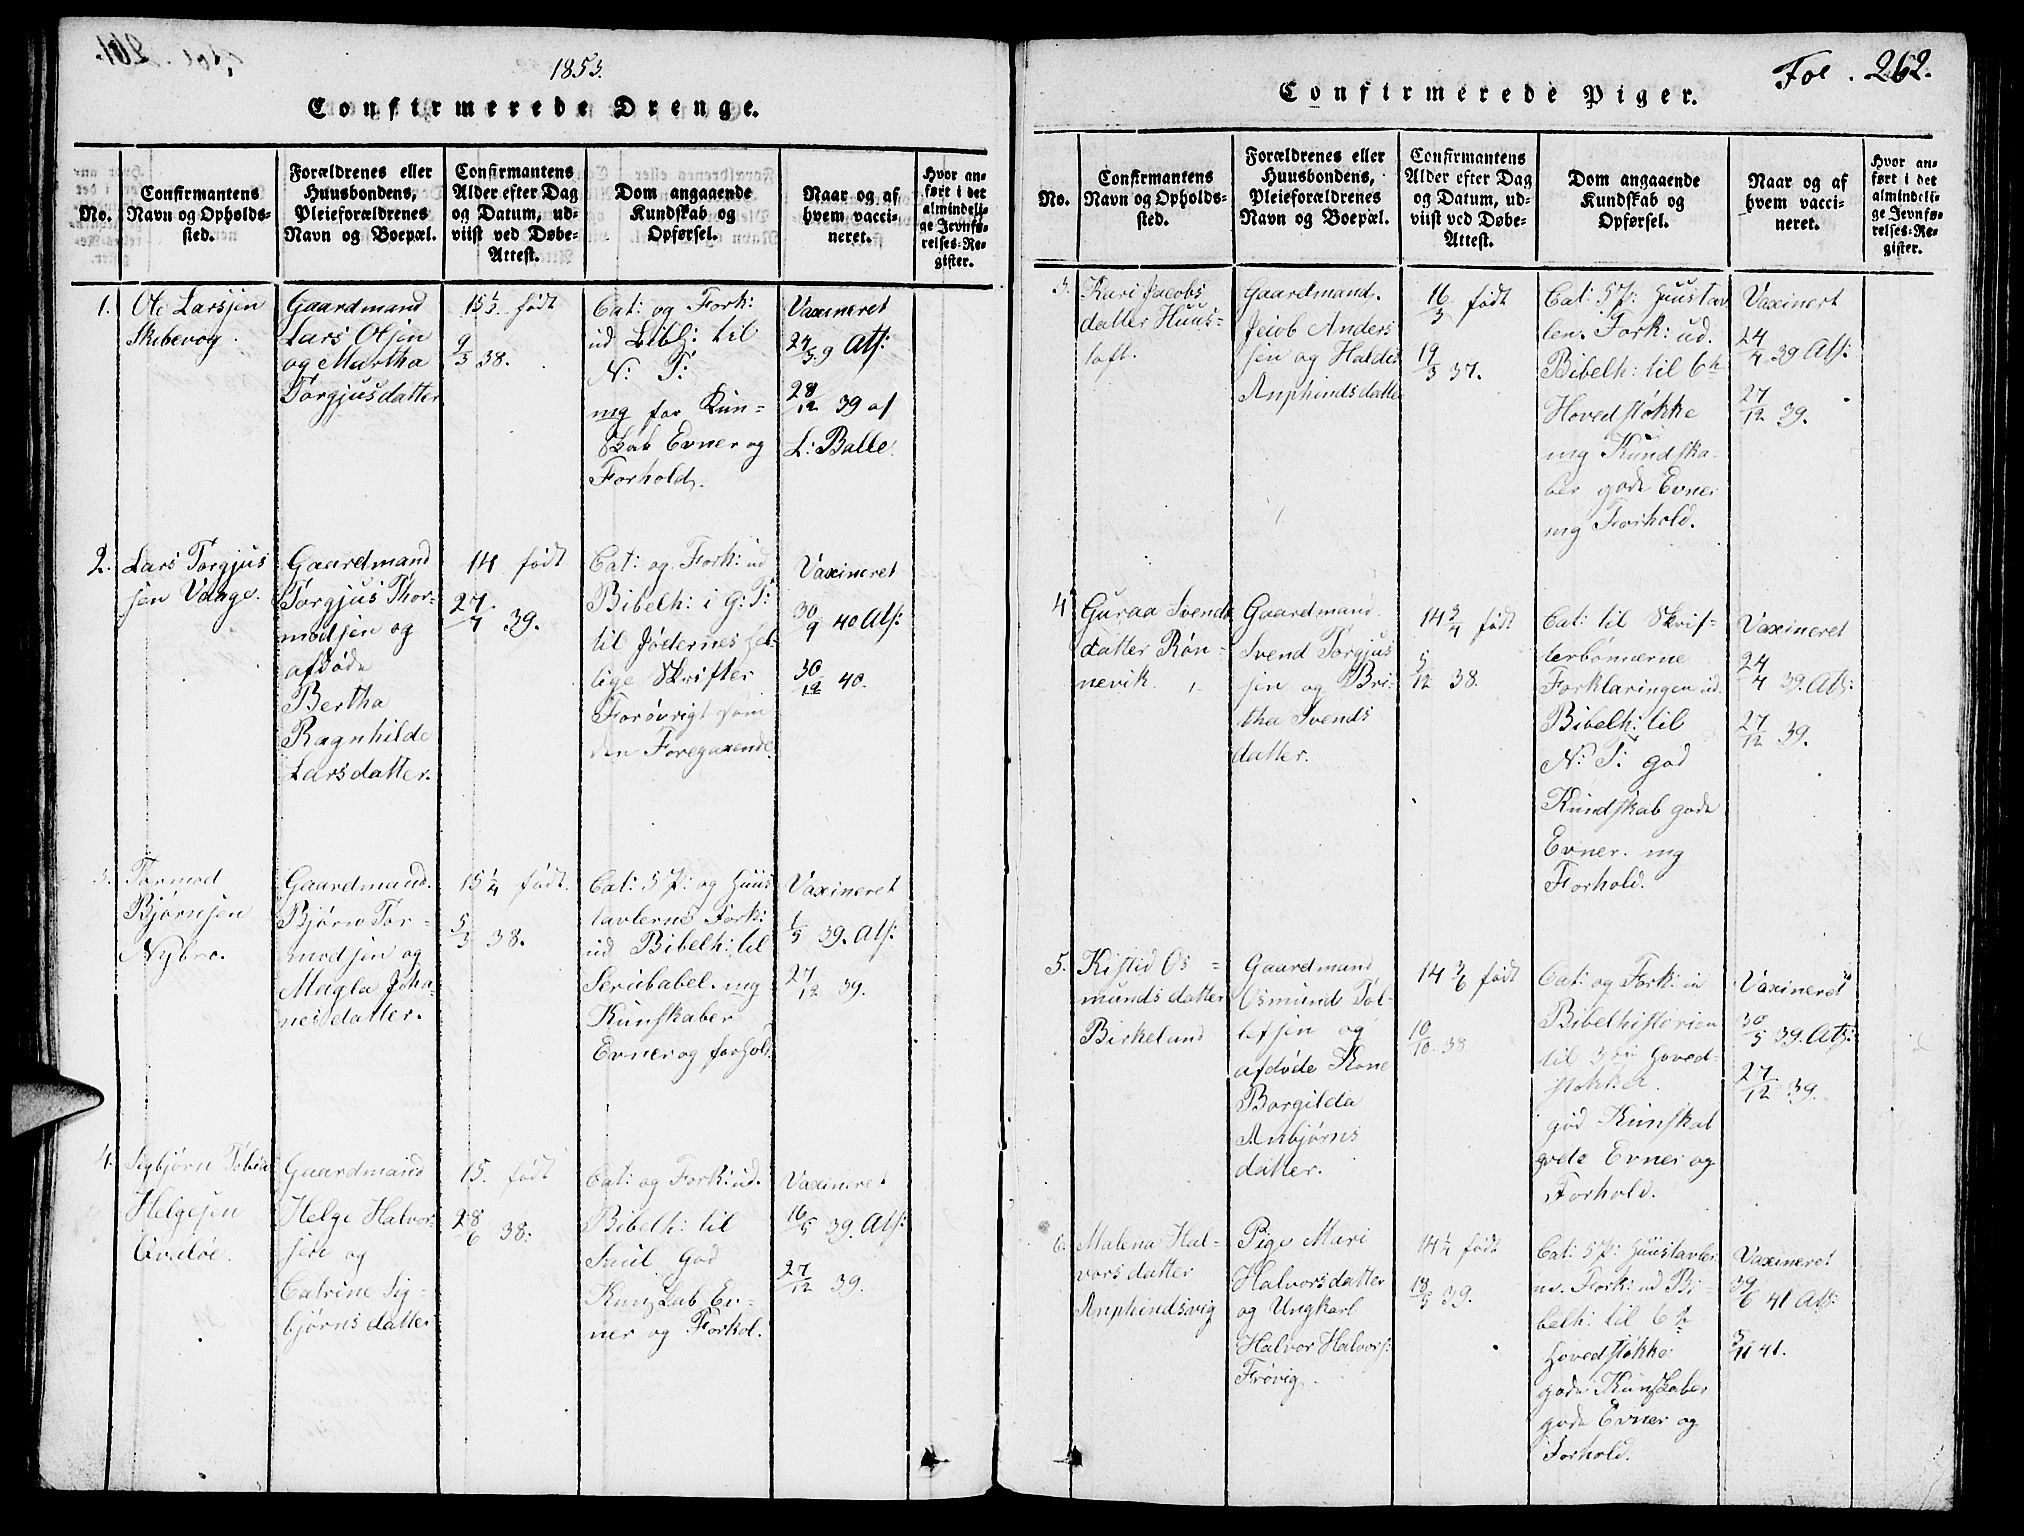 1853.
Confirmerede Drenge.
No.
Confirmantens
Navn og Opholds-
sted.
Forældrenes eller
Huusbondens,
Pleieforældrenes
Navn og Boepæl.
Confirmantens
Alder efter Dag
og Datum, ud-
viist ved Døbe-
Attest.
Dom angaaende
Kundskab og
Opførsel.
Naar og af
hvem vacci-
neret.
Hvor an-
ført i det
almindeli-
ge Jevnfø-
relses-Re-
gister.
1.
Ole Larssen
Skibevog.
Gaardmand
Lars Olsen
og Martha
Torgjusdatter
15 1/3 født
9/3 38.
Cat: og Fork:
ud Bibl: til
N: T:
mg for Kun-
skab Evner og
Forhold.
Vaxineret
39 Ats:
28/12 39 af
L: Balle.
2.
Lars Torgjus
sen Vaage.
Gaardmand
Torgjus Thor-
modsen og
afdøde
Bertha
Ragnhilde
Larsdatter.
14 født
27/7 39.
Cat: og Fork: ud
Bibelh: i G: T:
til Jødernes hel-
lige Skrifter
Forøvrigt som
den Foregaaende.
Vaxineret
30/9 40 Ats:
30/12 40.
3.
Tormod
Bjørnsen
Nybro.
Gaardmand.
Bjørn Tor-
modsen og
Magla Joha-
nesdatter.
15 1/4 født.
5/3 38.
Cat: 5 P: og Huus
tavlerne Fork:
ud Bibelh: til
Serubabel. mg
Kunskaber
Evner og forhold
Vaxineret
1/5 39. Ats:
27/12 39.
4.
Sigbjørn Tobias
Helgesen
Gaardmand
Helge Halvor-
sen og
Catrine Sig-
bjørnsdatter
15. født
28/6 38.
Cat: og Fork: ud.
Bibelh: til
Saul God
Kunskab Ev-
ner og Forhol.
Vaxineret
16/5 39. Ats:
27/12 39.
Fol. 262.
Confirmerede Piger.
No.
Confirmantens
Navn og Opholds-
sted.
Forældrenes eller
Huusbondens,
Pleieforældrenes
Navn og Boepæl.
Confirmantens
Alder efter Dag
og Datum, ud-
viist ved Døbe-
Attest.
Dom angaaende
Kundskab og
Opførsel.
Naar og af
hvem vacci-
neret.
Hvor an-
ført i det
almindeli-
ge Jevnfø-
relses-Re-
gister.
3.
Kari Jacobs
datter Huus-
toft.
Gaardmand.
Jacob Anders
sen og
Anphindsdatter
16 født
19/3 37.
Cat: 5 P: Huustav
len. Fork: ud.
Bibelh: til 6te
Hovedstøkke
mg Kundska-
ber gode Evner
mg Forhold.
Vaxinert
24/4 39 Ats:
27/12 39.
4
Guraa Svends
datter Røn-
nevik.
Gaardmand.
Svend Torgjus
sen og Bri-
tha Svends
datter.
14 3/4 født
5/12 38.
Cat: til Skrif-
terbønnerne
Forklaringen ud.
Bibelh: til
N: T: god
Kundskab gode
Evner. mg
Forhold.
Vaxineret
24/4 39. Ats:
27/12 39.
5.
Kistid Os-
mundsdatter
Birkeland
Gaardmand
Osmund Tol-
lefsen og
afdøde Kone
Borgilda
Anbjørns
datter.
14 født
10/10 38
Cat: og Fork:
Bibelhistorien
til 3die Hoved-
støkker.
god Kunskab
gode Evner og
Forhold.
Vaxineret
30/5 39. Ats:
27/12 39.
6.
Malena Hal-
vorsdatter
Anphindsvig
Pige Mari
Halvorsdatter
og Ungkarl
Halvor Halvors:
Frøvig.
14 1/2 født
18/3 39.
Cat: 5 P: Huustavler
ne. Fork: ud Bi-
belh: til 6te
Hovedstøkke
gode Kunskaber
gode Evner og
Forhold.
Vaxineret
41 Ats:
41.